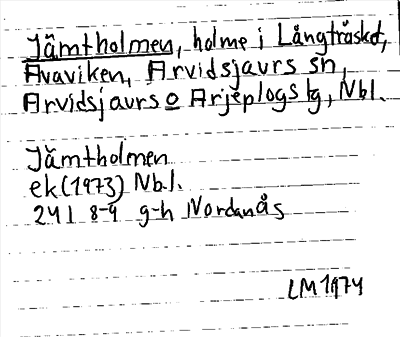 Jämtholmen, holme i Långträsket,
Avaviken, Arvidsjaurs sn,
Arvidsjaurs o Arjeplogs tg, Nbl.
Jämtholmen
ek (1973) Nb.l.
24 I 8-9 g-h Nordanås
LM 1974